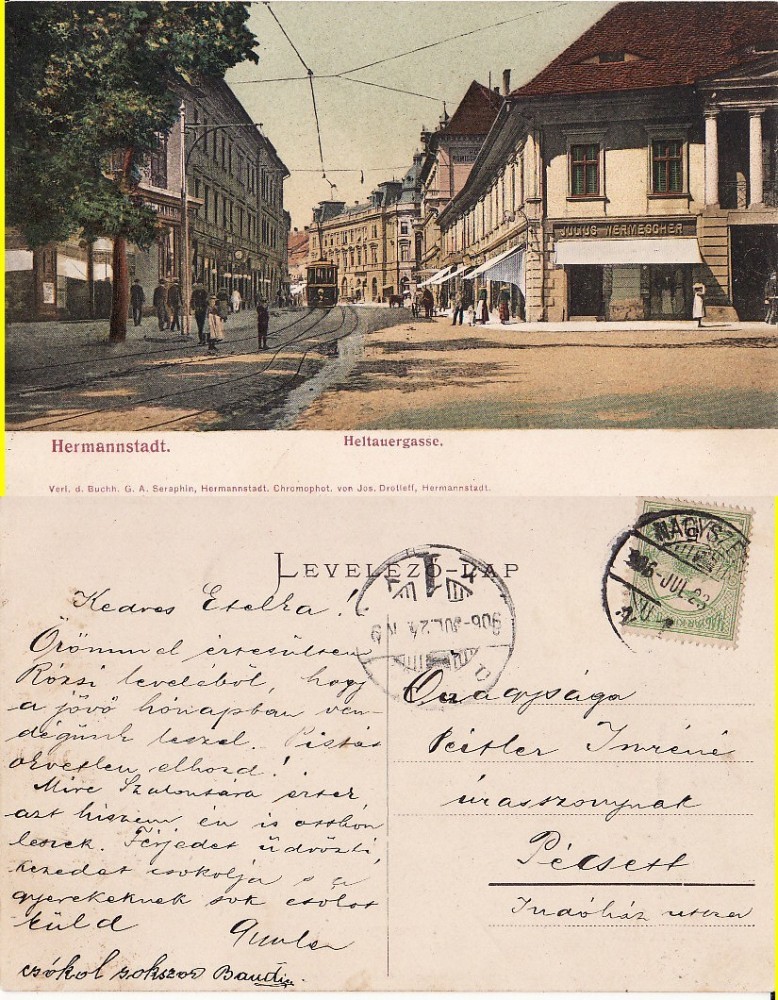 JULIUS WERMESCHER
Hermannstadt.
Heltauergasse.
Verl. d. Buchh. G. A. Seraphin, Hermannstadt. Chromophot. von Jos. Drotleff, Hermannstadt.
LEVELEZŐ-LAP
NAGYSZE
906 JUL. 23
906 JUL. 24
Kedves Etelka!
Örömmel értesültem
Rózsi leveléből, hogy
a jövő hónapban ven-
dégünk leszel. Pistát
okvetlen elhozd!
Mire Szalontára értek
azt hiszem én is otthon
leszek. Férjedet üdvözli,
kezedet csokolja s a
gyerekeknek sok csókot
küld
csókol sokszor
Őnagysága
Peitler Imréné
úrasszonynak
Pécsett
Indóház utcza